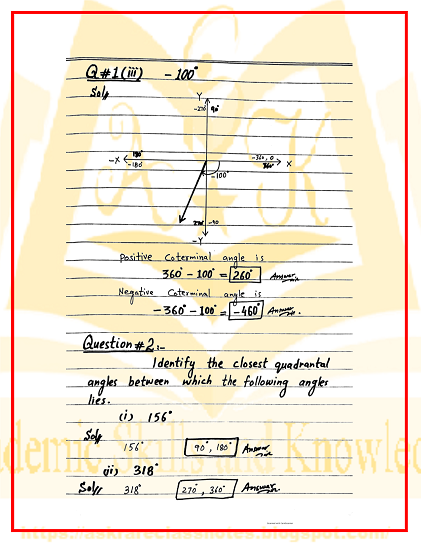 Q#1(iii) -100°
Sol:
Y
-270 90°
180°
-X -180 -360, 0 X
360°
-100°
270 -90
-Y
Positive Coterminal angle is
360° - 100° = 260° Answer
Negative Coterminal angle is
-360° - 100° = -460° Answer
Question#2:-
Identify the closest quadrantal
angles between which the following angles
lies.
(i) 156°
Sol:
156° 90°, 180° Answer
(ii) 318°
Sol: 318° 270°, 360° Answer
demic Skills and Knowled
https://askrareclassnotes.blogspot.com/